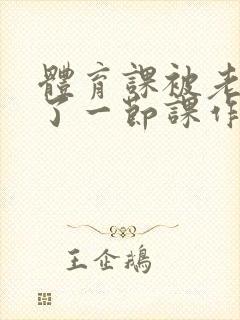 體育課被老
了一節課作
王企鵝